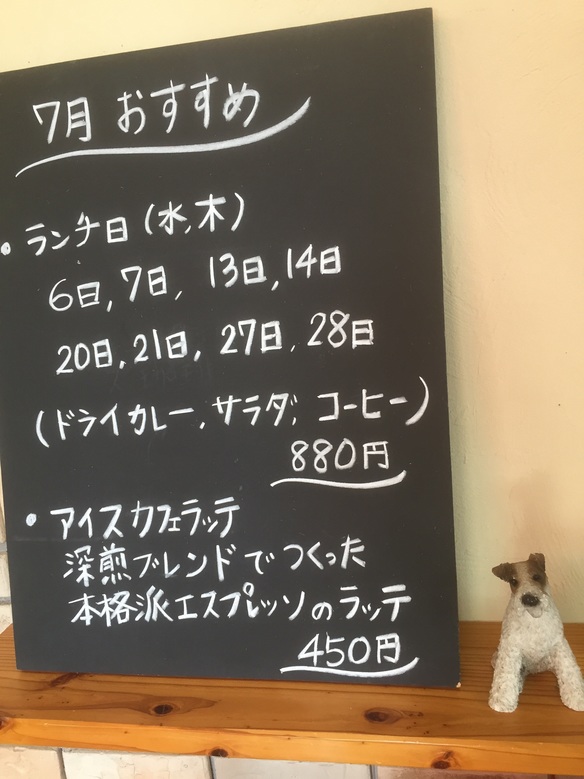 7月 おすすめ
• ランチ日(水,木)
6日,7日, 13日,14日
20日,21日, 27日, 28日
(ドライカレー,サラダ, コーヒー)
880円
• アイスカフェラッテ
深煎ブレンドでつくった
本格派エスプレッソのラッテ
450円